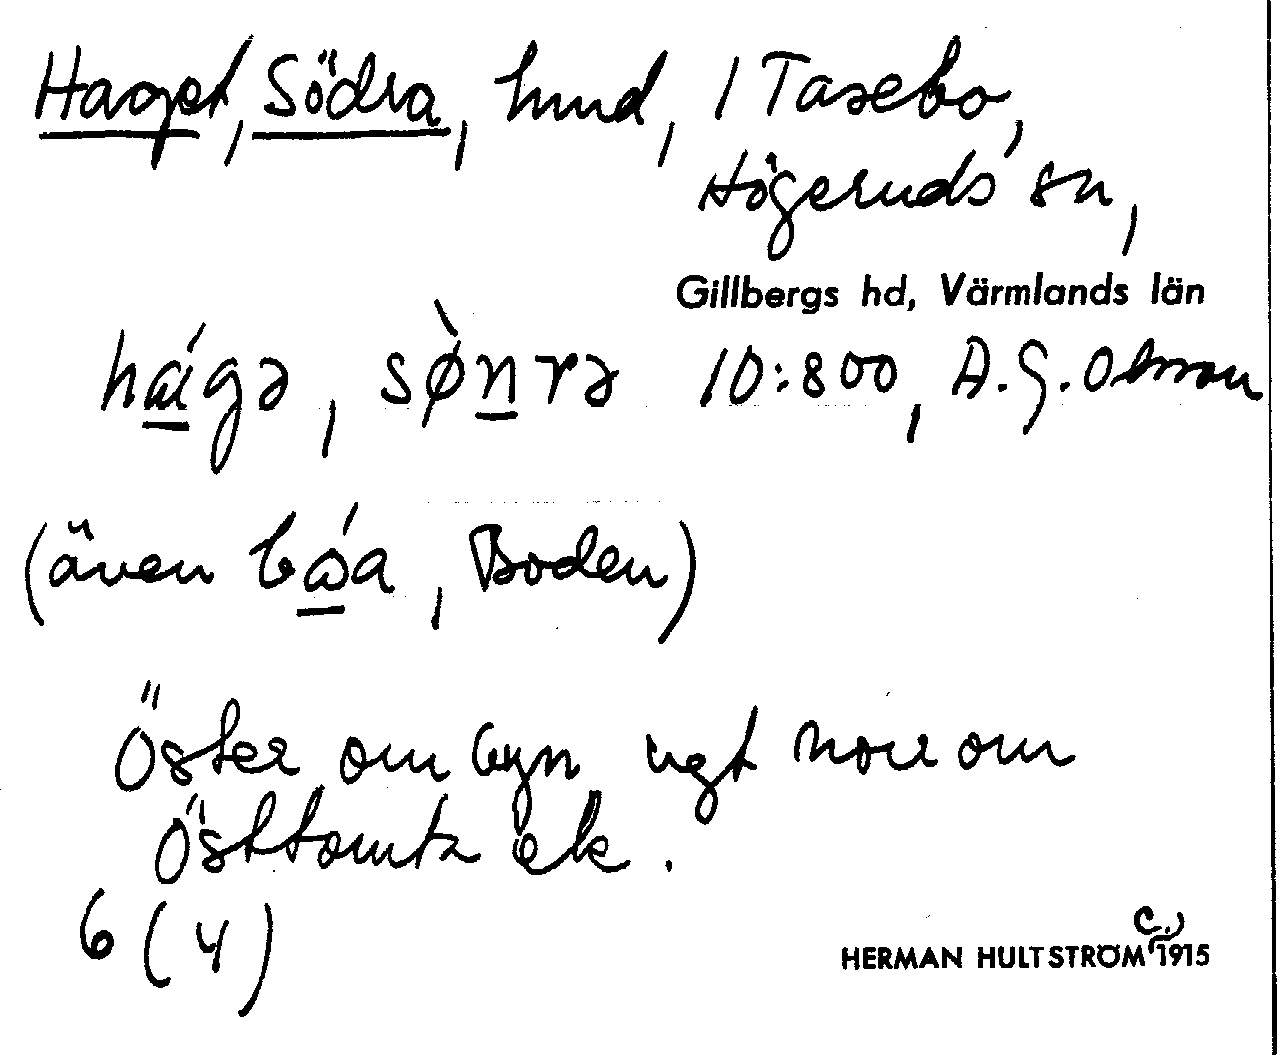 Haget, Södra, hmd, 1 Tasebo,
Högeruds sn,
Gillbergs hd, Värmlands län
há̱gə, sø̀ṉrə 10:800, A.G.Olsson
(även bɷ́a, Boden)
Öster om byn vgt norr om
Östtomta äk.
6 (4)
HERMAN HULTSTRÖM (c.) 1915